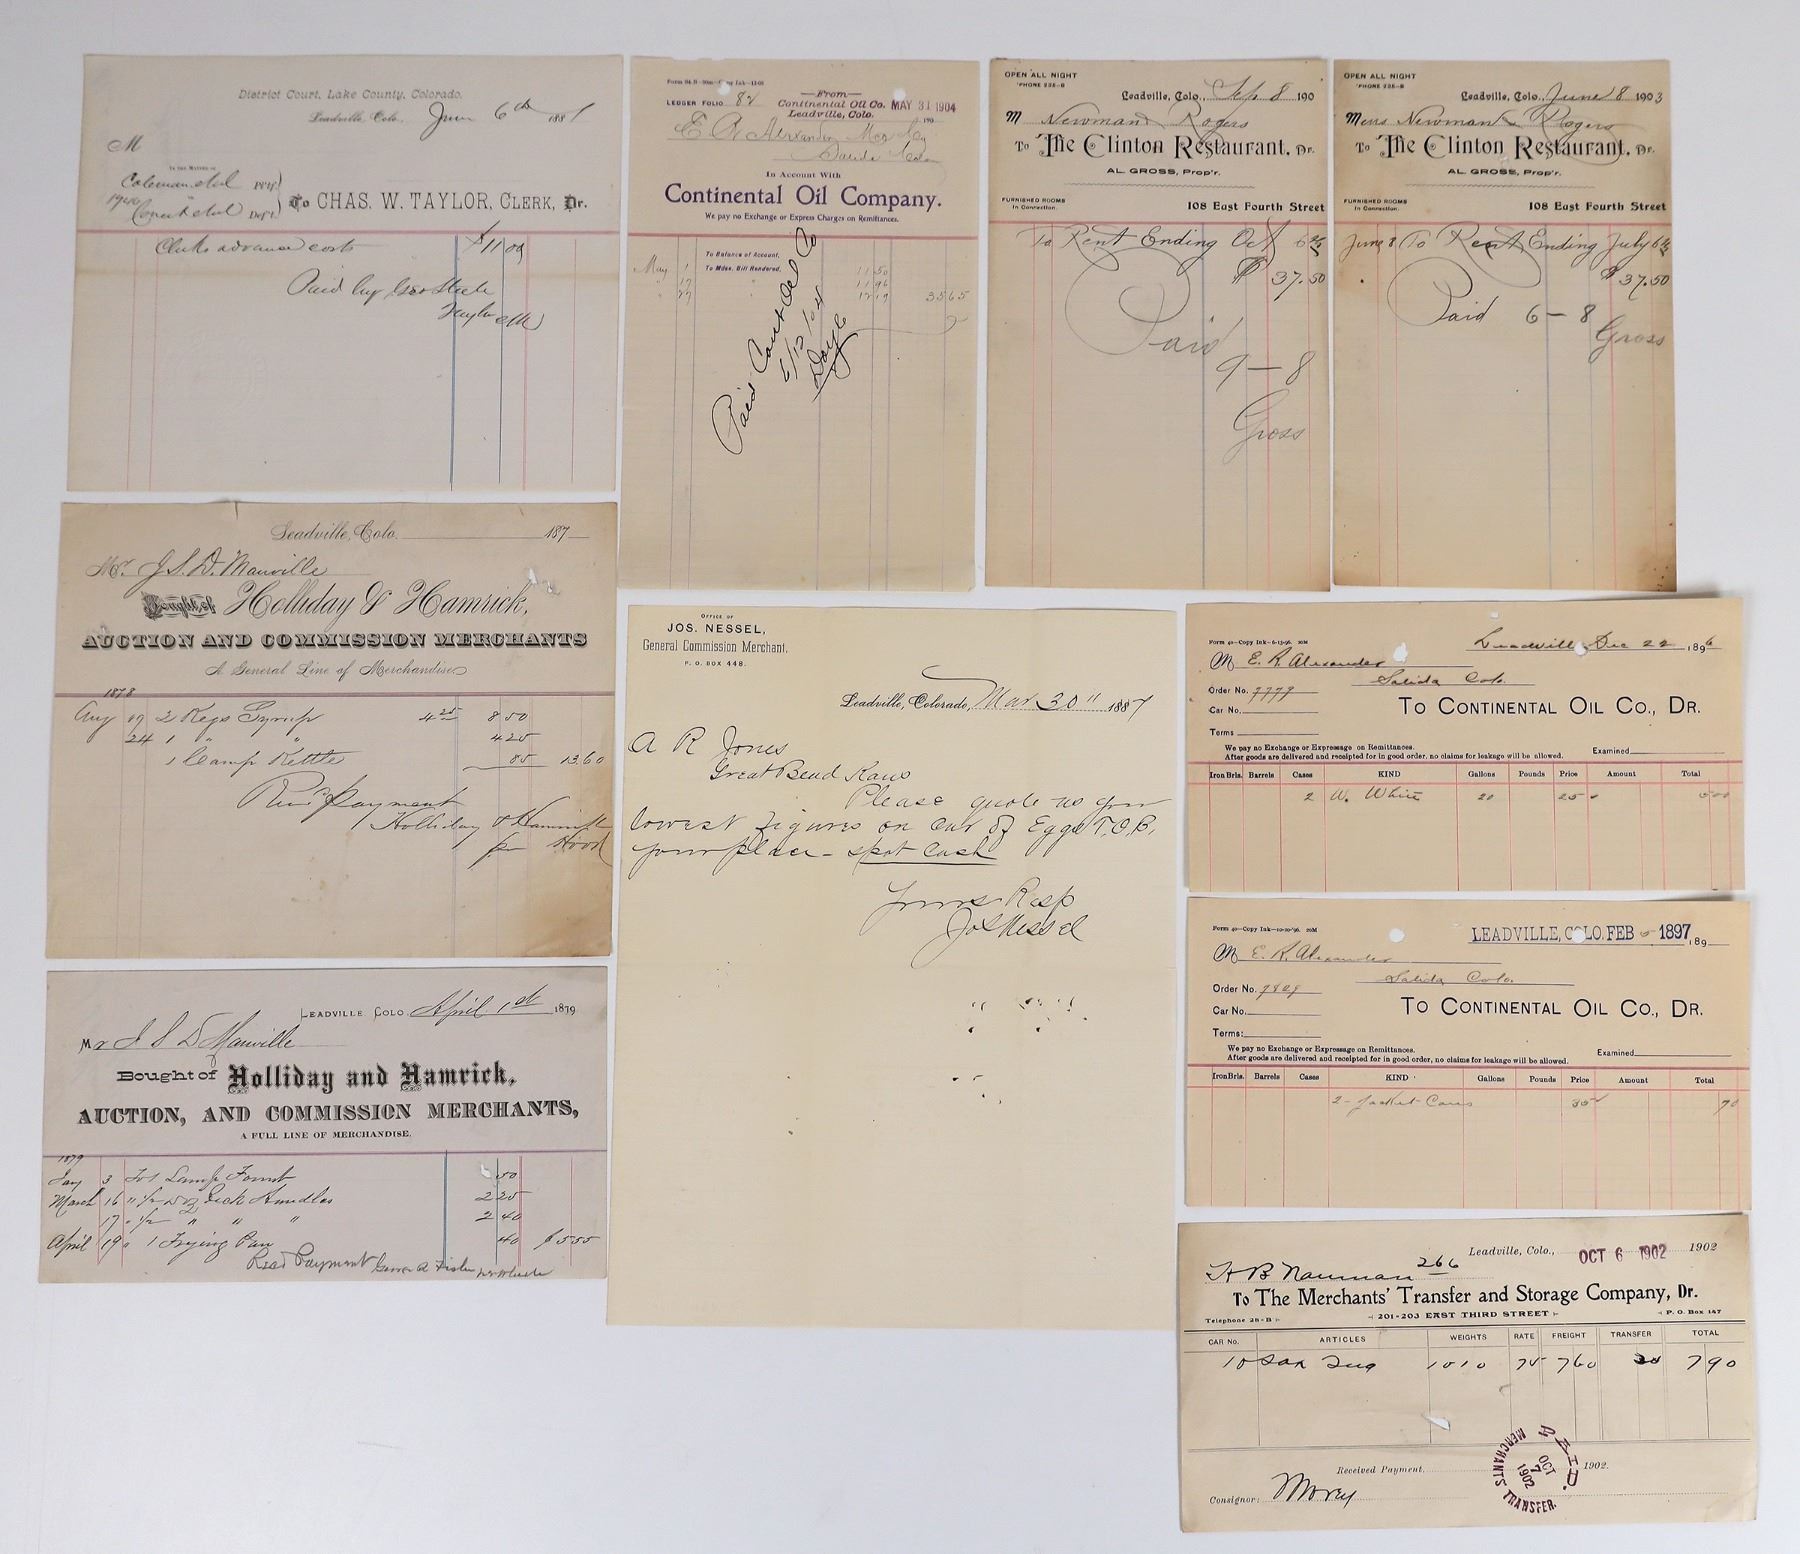 District Court, Lake County, Colorado.
Leadville, Colo., June 6th 1881
M
TO THE MATTER OF
Coleman et al Pl'ff
1940
et al Def't
To CHAS. W. TAYLOR, CLERK, Dr.
Clerks advanced costs $11 00
Paid by Geo Steele
Taylor Clk
Form 84 B
LEDGER FOLIO 82
—From—
Continental Oil Co. MAY 31 1904
Leadville, Colo.
190
E R Alexander Mer Co
Salida Colo
In Account With
Continental Oil Company.
We pay no Exchange or Express Charges on Remittances.
To Balance of Account,
May 1 To Mdse. Bill Rendered, 11 50
17 " 11 96
" 27 12 19 35 65
Paid Cont Oil Co
6/12/04
Doyle
OPEN ALL NIGHT
'PHONE 235-B
Leadville, Colo., Sep 8 190
M Newman & Rogers
To The Clinton Restaurant, Dr.
AL. GROSS, Prop'r.
FURNISHED ROOMS
In Connection.
108 East Fourth Street
To Rent Ending Oct 6
$ 37.50
Paid
9-8
Gross
OPEN ALL NIGHT
'PHONE 235-B
Leadville, Colo., June 8 1903
Mess Newman & Rogers
To The Clinton Restaurant, Dr.
AL. GROSS, Prop'r.
FURNISHED ROOMS
In Connection.
108 East Fourth Street
June 8 To Rent Ending July 6
$ 37.50
Paid 6-8
Gross
Leadville, Colo. 187
Mr. J. S. D. Manville
Bought of Holliday & Hamrick,
AUCTION AND COMMISSION MERCHANTS
A General Line of Merchandise
1878
Aug 19 2 Kegs Syrup 4 25 8 50
24 1 " " 4 25
1 Camp Kettle 85 13.60
Recd Payment
Holliday & Hamrick
per Hood
OFFICE OF
JOS. NESSEL,
General Commission Merchant,
P. O. BOX 448.
Leadville, Colorado, Mar 30" 1887
A R Jones
Great Bend Kans
Please quote us your
lowest figures on car of Eggs F.O.B.
your place - spot cash
Yours Resp
Jos Nessel
Form 40—Copy Ink—6-13-96. 20M
Leadville Dec 22, 1896
M E. R. Alexander
Salida Colo.
Order No. 9779
Car No.
Terms
TO CONTINENTAL OIL CO., DR.
We pay no Exchange or Expressage on Remittances.
After goods are delivered and receipted for in good order, no claims for leakage will be allowed.
Examined
Iron Brls. Barrels Cases KIND Gallons Pounds Price Amount Total
2 W. White 20 25 5 00
Form 40—Copy Ink—10-20-'96. 20M
LEADVILLE, COLO. FEB 1897, 189
M E. R. Alexander
Salida Colo.
Order No. 9829
Car No.
Terms:
TO CONTINENTAL OIL CO., DR.
We pay no Exchange or Expressage on Remittances.
After goods are delivered and receipted for in good order, no claims for leakage will be allowed.
Examined
Iron Brls. Barrels Cases KIND Gallons Pounds Price Amount Total
2 - Jacket Cans 35 70
LEADVILLE COLO. April 1st 1879
Mr J S D Manville
Bought of Holliday and Hamrick,
AUCTION, AND COMMISSION MERCHANTS,
A FULL LINE OF MERCHANDISE.
1879
Jany 3 To 1 Lamp Fount 50
March 16 " 1/2 Doz Pick Handles 2 25
17 " 1/2 " " " 2 40
April 19 " 1 Frying Pan 40 $5 55
Recd Payment
Leadville, Colo., OCT 6 1902 1902
266
H B Nauman
To The Merchants' Transfer and Storage Company, Dr.
Telephone 28-B 201-203 EAST THIRD STREET P. O. Box 147
CAR No. ARTICLES WEIGHTS RATE FREIGHT TRANSFER TOTAL
10 Sax Sug 1010 75 760 30 790
Received Payment, 1902.
Consignor: Morey
PAID.
OCT
7
1902
MERCHANTS TRANSFER.